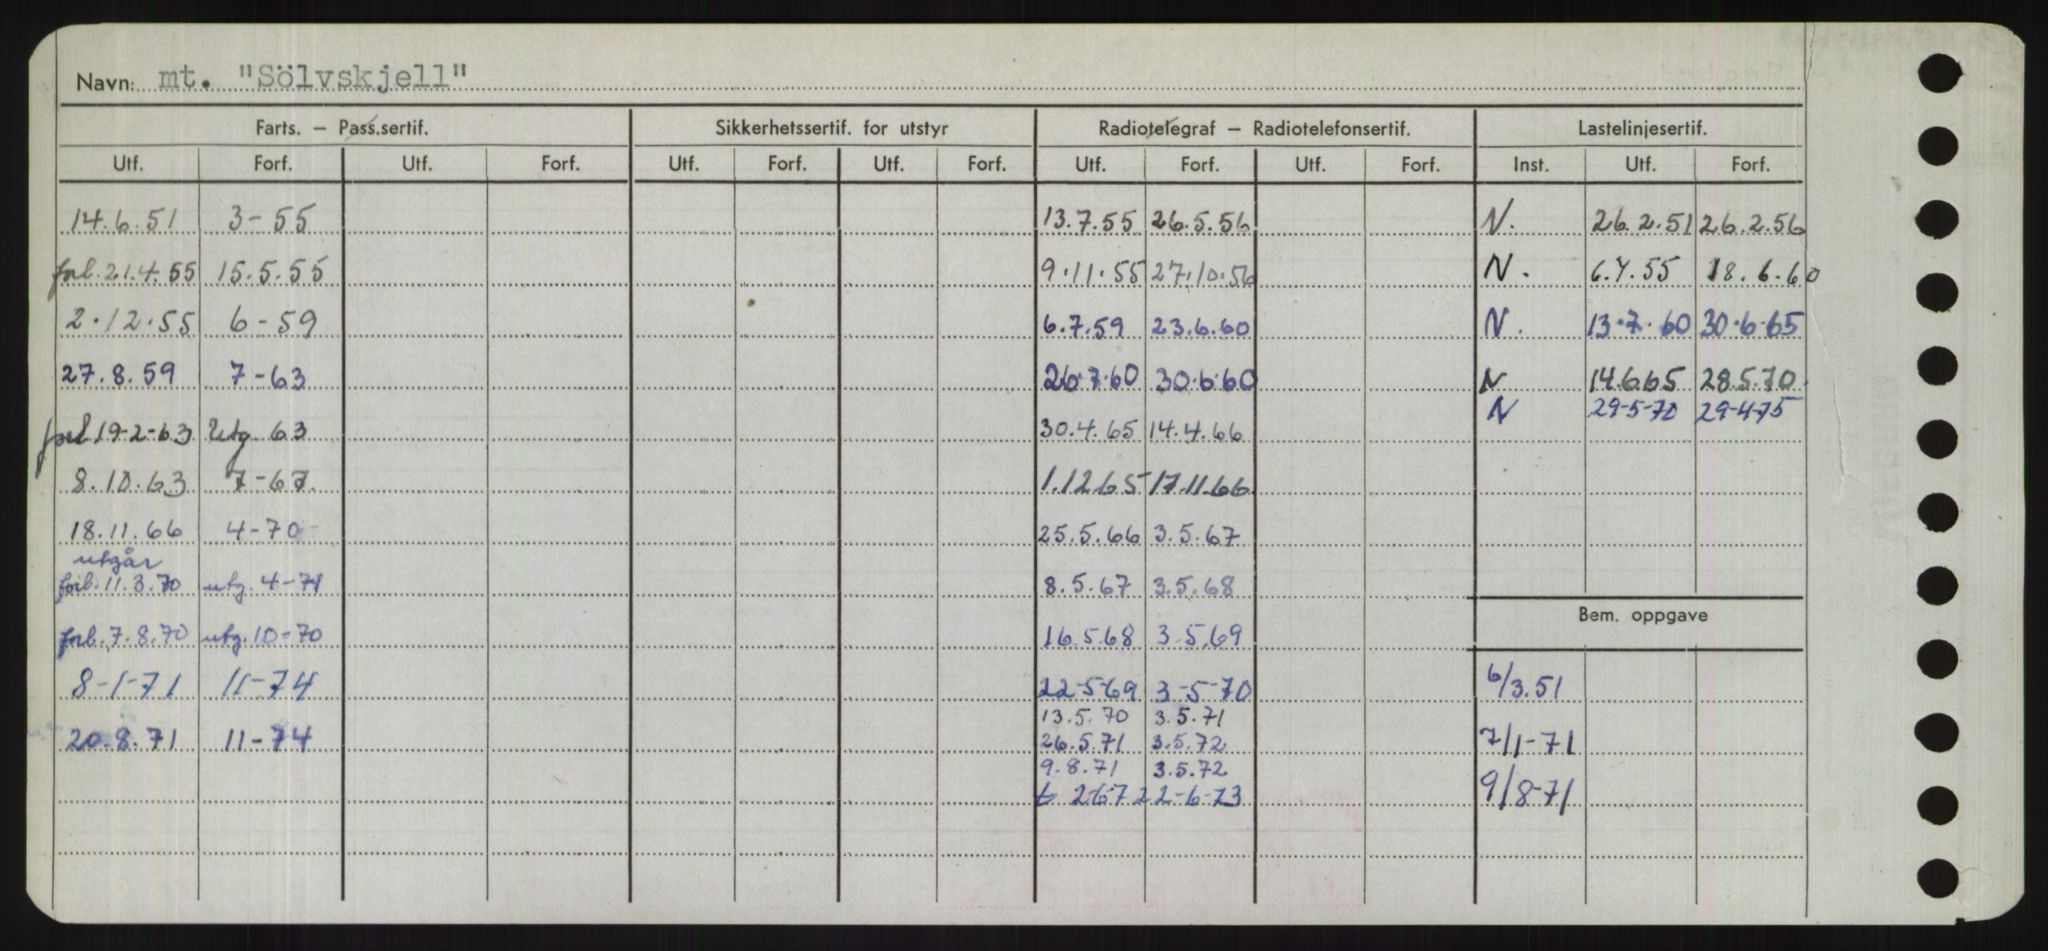 Navn: mt. "Sölvskjell"
Farts. - Pass.sertif. Sikkerhetssertif. for utstyr Radiotelegraf - Radiotelefonsertif. Lastelinjesertif.
Utf. Forf. Utf. Forf. Utf. Forf. Utf. Forf. Utf. Forf. Utf. Forf. Inst. Utf. Forf.
14.6.51 3-55 13.7.55 26.5.56 N. 26.2.51 26.2.56
forl. 21.4.55 15.5.55 9.11.55 27.10.56 N. 6.7.55 18.6.60
2.12.55 6-59 6.7.59 23.6.60 N. 13.7.60 30.6.65
27.8.59 7-63 26.7.60 30.6.60 N 14.6.65 28.5.70
N 29-5-70 29-4-75
forl 19-2-63 Utg. 63 30.4.65 14.4.66
8.10.63 7-67. 1.12.65 17.11.66
18.11.66 4-70 25.5.66 3.5.67
utgår
forl. 11.3.70 utg. 4-71 8.5.67 3.5.68
Bem. oppgave
forl. 7.8.70 utg. 10-70 16.5.68 3.5.69
8-1-71 11-74 22-5-69 3-5-70 6/3.51
13.5.70 3.5.71
20.8.71 11-74 26.5.71 3.5.72 7/1-71
9.8.71 3.5.72
2-6-73 9/8-71